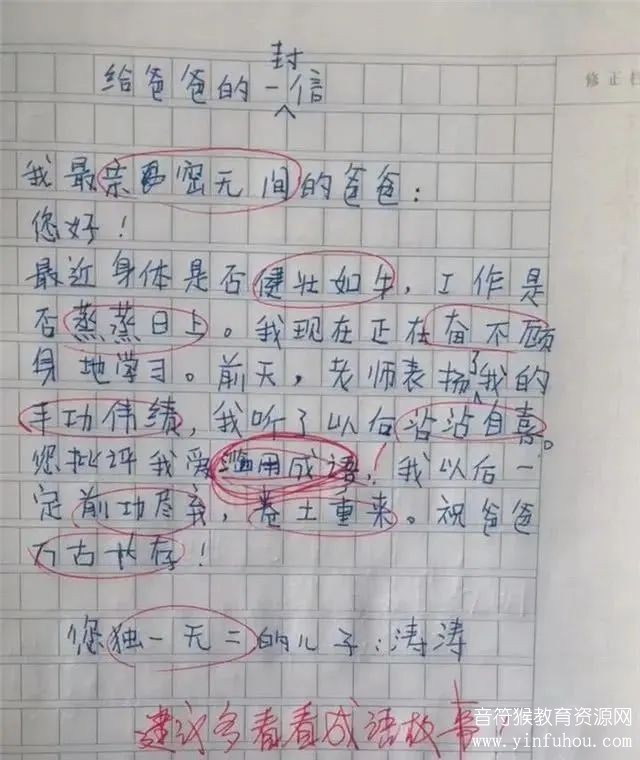 给爸爸的一封信
修正栏
我最亲密无间的爸爸：
您好！
最近身体是否健壮如牛，工作是
否蒸蒸日上。我现在正在奋不顾
身地学习。前天，老师表扬了我的
丰功伟绩，我听了以后沾沾自喜。
您批评我爱滥用成语，我以后一
定前功尽弃，卷土重来。祝爸爸
万古长存！
您独一无二的儿子：涛涛
建议多看看成语故事！
音符猴教育资源网
www.yinfuhou.com